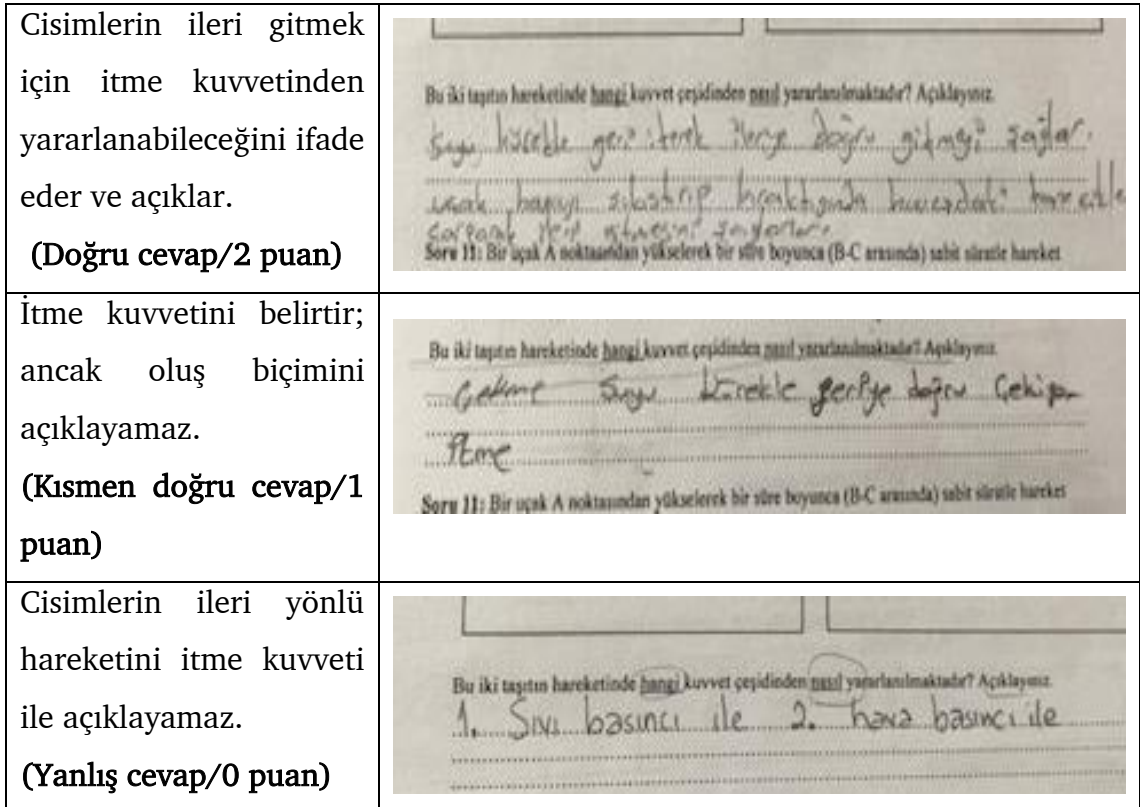 Cisimlerin ileri gitmek
için itme kuvvetinden
yararlanabileceğini ifade
eder ve açıklar.
(Doğru cevap/2 puan)
Bu iki taşıtın hareketinde hangi kuvvet çeşidinden nasıl yararlanılmaktadır? Açıklayınız.
Suyu kürekle geri iterek ileriye doğru gitmeyi sağlar.
uçak havayı sıkıştırıp bıraktığında havadaki
Soru 11: Bir uçak A noktasından yükselerek bir süre boyunca (B-C arasında) sabit süratle hareket
İtme kuvvetini belirtir;
ancak oluş biçimini
açıklayamaz.
(Kısmen doğru cevap/1
puan)
Bu iki taşıtın hareketinde hangi kuvvet çeşidinden nasıl yararlanılmaktadır? Açıklayınız.
Çekme Suyu kürekle geriye doğru çekip
İtme
Soru 11: Bir uçak A noktasından yükselerek bir süre boyunca (B-C arasında) sabit süratle hareket
Cisimlerin ileri yönlü
hareketini itme kuvveti
ile açıklayamaz.
(Yanlış cevap/0 puan)
Bu iki taşıtın hareketinde hangi kuvvet çeşidinden nasıl yararlanılmaktadır? Açıklayınız.
1. Sıvı basıncı ile 2. hava basıncı ile